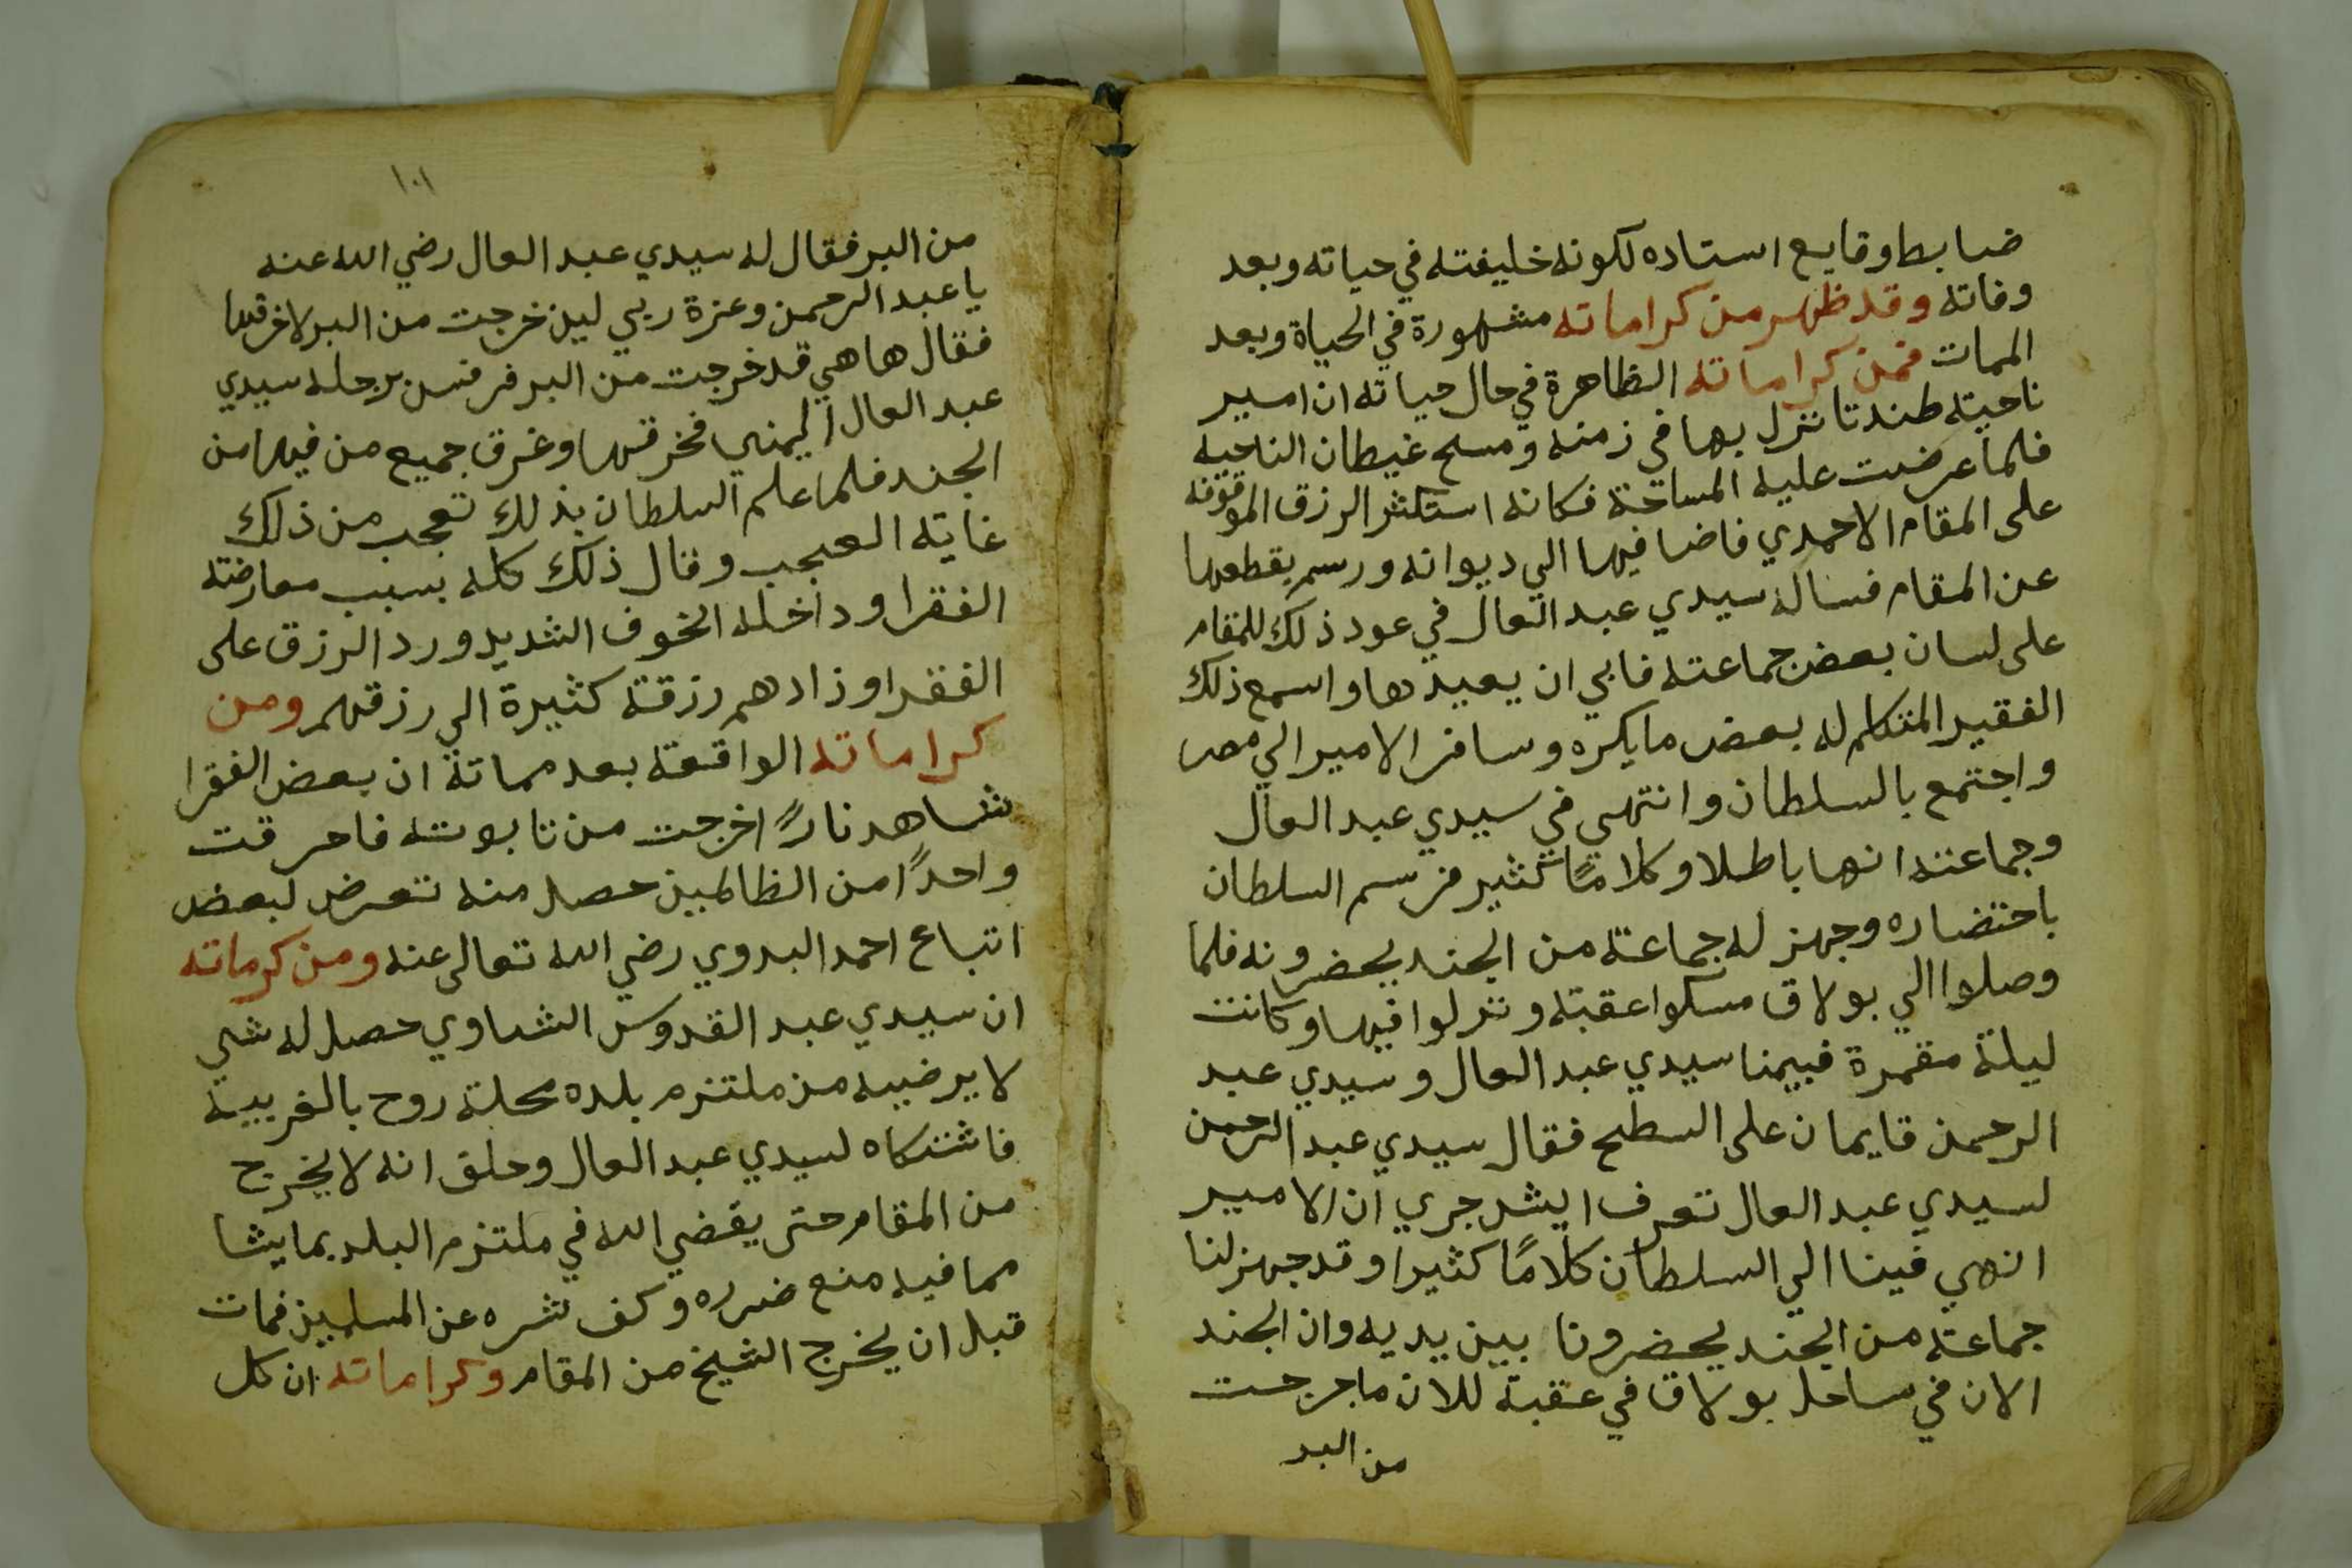 ضابط وقايع استاده لكونه خليفته في حياته وبعد
وفاته وقد ظهر من كراماته مشهورة في الحياة وبعد
الممات فمن كراماته الظاهرة في حال حياته ان امير
ناحية طندتا نزل بها في زمنه ومسح غيطان الناحية
فلما عرضت عليه المساحة فكانه استكثر الرزق الموقوفه
على المقام الاحمدي فاضافيها الي ديوانه ورسم بقطعها
عن المقام فساله سيدي عبد العال في عود ذلك للمقام
على لسان بعض جماعته فابي ان يعيدها واسمع ذلك
الفقير المتكلم له بعض مايكره وسافر الامير الي مصر
واجتمع بالسلطان وانتهي في سيدي عبد العال
وجماعته انها باطلا وكلامًا كثير فرسم السلطان
باحتضاره وجهز له جماعة من الجند يحضرونه فلما
وصلوا الي بولاق مسكوا عقبة ونزلوا فيها وكانت
ليلة مقمرة فبيمنا سيدي عبد العال وسيدي عبد
الرحمن قايمان على السطح فقال سيدي عبد الرحمن
لسيدي عبد العال تعرف ايش جري ان الامير
انهي فينا الي السلطان كلامًا كثيرا وقد جهز لنا
جماعة من الجند يحضرونا بين يديه وان الجند
الان في ساحل بولاق في عقبة للان ماجرجت
من البر
١٠١
من البر فقال له سيدي عبد العال رضي الله عنه
يا عبد الرحمن وعزة ربي لين خرجت من البر لاخرقتها
فقال ها هي قد خرجت من البر فرفس برجله سيدي
عبد العال اليمني فخرقها وغرق جميع من فيها من
الجند فلما علم السلطان بذلك تعجب من ذلك
غاية العجب وقال ذلك كله بسبب معارضة
الفقرا وداخله الخوف الشديد ورد الرزق على
الفقرا وزادهم رزقة كثيرة الي رزقهم ومن
كراماته الواقعة بعد مماتة ان بعض الفقرا
شاهد نارًا خرجت من تابوته فاحرقت
واحدًا من الظالمين حصل منه تعرض لبعض
اتباع احمد البدوي رضي الله تعالى عنه ومن كرماته
ان سيدي عبد القدوس الشناوي حصل له شي
لا يرضيه من ملتزم بلده محلة روح بالغربية
فاشتكاه لسيدي عبد العال وحلق انه لا يخرج
من المقام حتى يقضي الله في ملتزم البلد بما يشا
مما فيه منع ضرره وكف شره عن المسلمين فمات
قبل ان يخرج الشيخ من المقام وكراماته ان كل